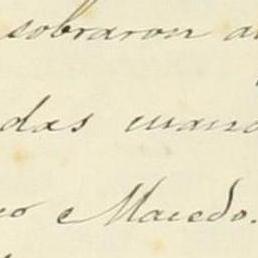 sobraron a
das cuand
co e Macedo.